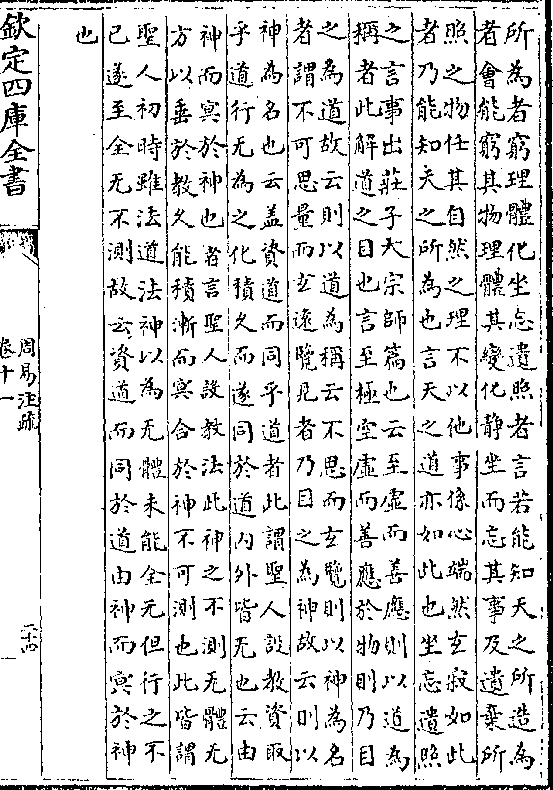 所為者窮理體化坐忘遺照者言若能知天之所造為
者會能窮其物理體其變化静坐而忘其事及遺棄所
照之物任其自然之理不以他事係心端然玄寂如此
者乃能知天之所為也言天之道亦如此也坐忘遺照
之言事出莊子大宗師篇也云至虛而善應則以道為
稱者此解道之目也言至極空虛而善應於物則乃目
之為道故云則以道為稱云不思而玄覽則以神為名
者謂不可思量而玄逺覽見者乃目之為神故云則以
神為名也云盖資道而同乎道者此謂聖人設教資取
乎道行无為之化積久而遂同於道内外皆无也云由
神而冥於神也者言聖人設教法此神之不測无體无
方以垂於教久能積漸而冥合於神不可測也此皆謂
聖人初時雖法道法神以為无體未能全无但行之不
已遂至全无不測故云資道而同於道由神而冥於神
也
欽定四庫全書
周易注疏
卷十一
二十四